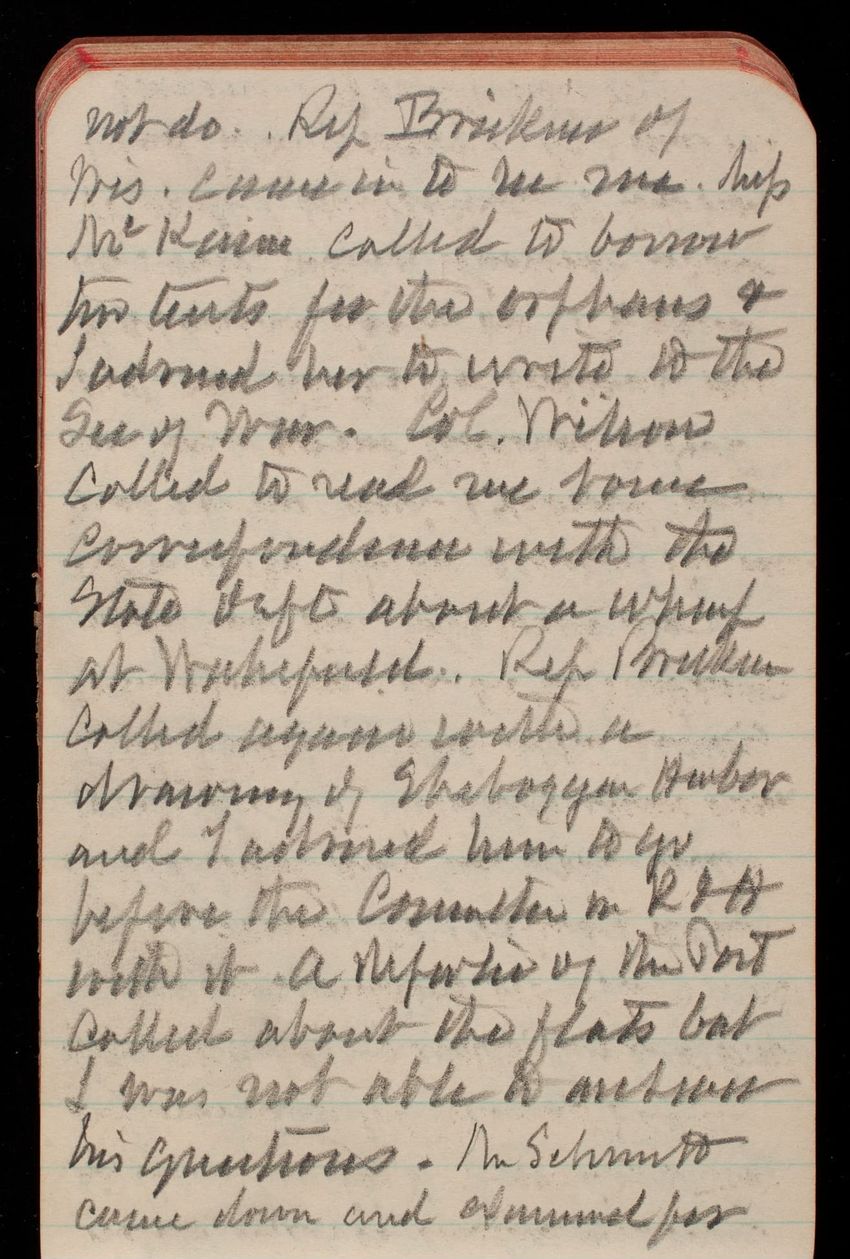 not do. Rep Brickner of
Wis. came in to see me.
Mr Kaine called to borrow
two tents for the orphans &
I advised her to write to the
Sec of War. Col. Wilson
called to read me some
correspondence with the
State Dept about a wharf
at Wakefield. Rep Brickner
called again with a
drawing of Sheboygan Harbor
and I advised him to go
before the Committee on R & H
with it. A Reporter of the Post
called about the flats but
I was not able to answer
his questions. Mr Schmitt
came down and examined for